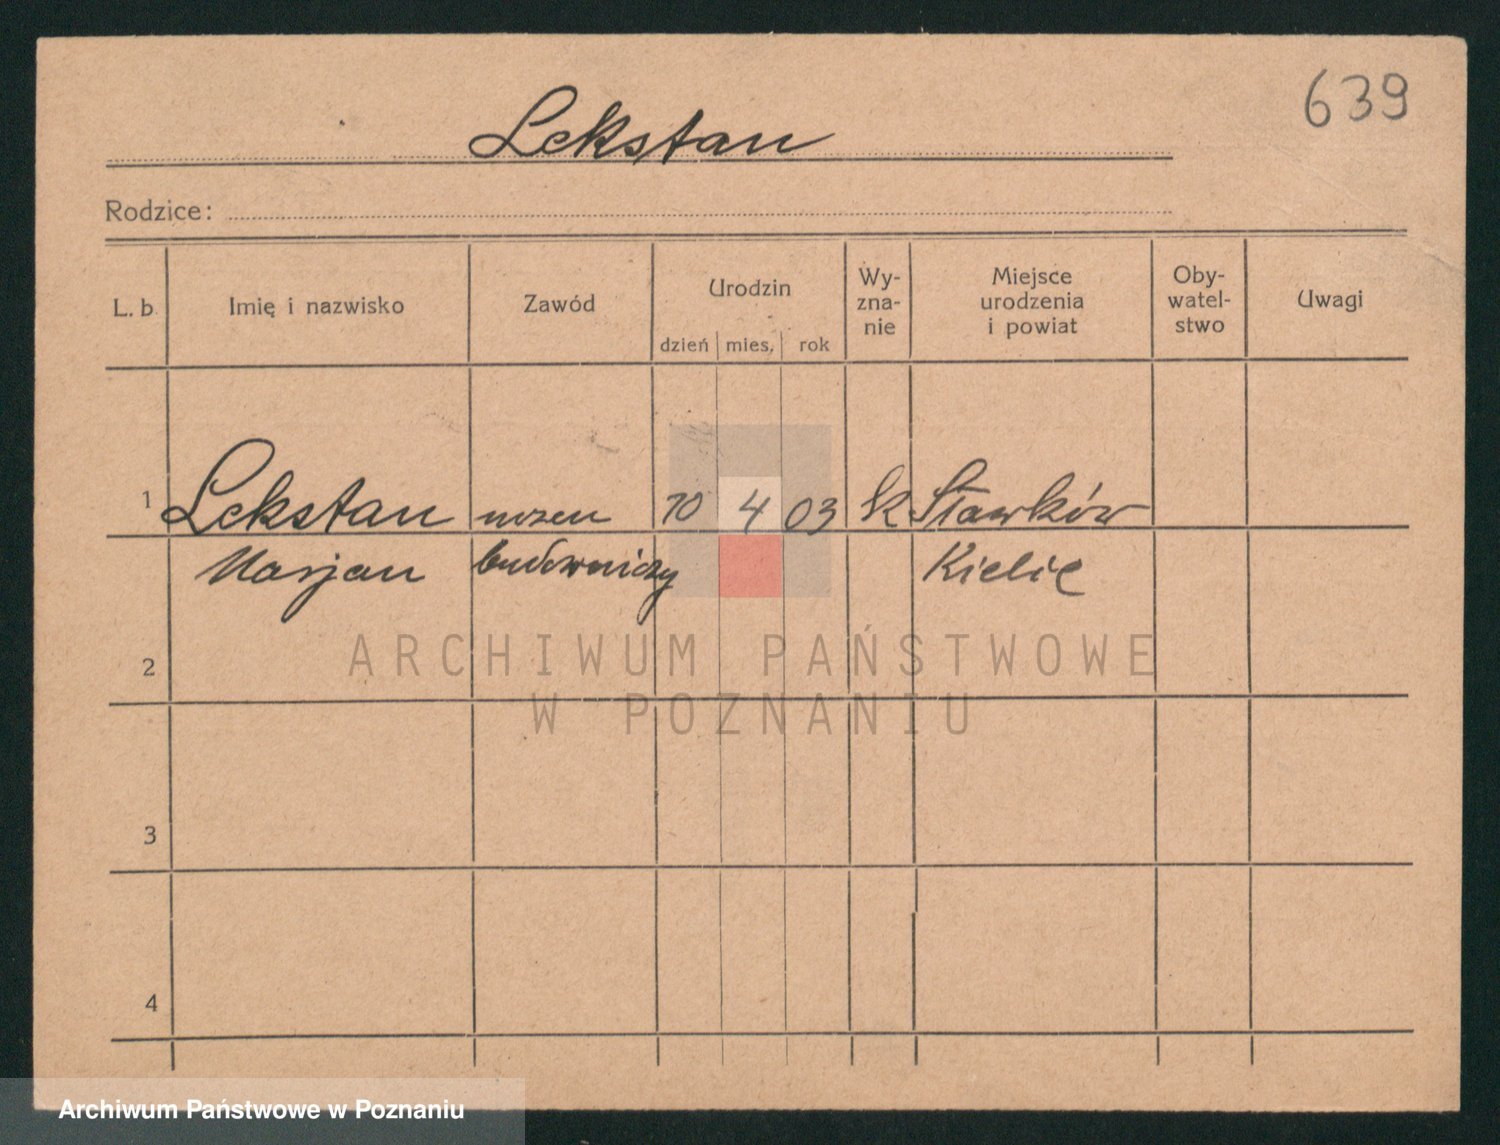 639
Lekstan
Rodzice:
L. b.
Imię i nazwisko
Zawód
Urodzin
dzień
mies.
rok
Wy-
zna-
nie
Miejsce
urodzenia
i powiat
Oby-
watel-
stwo
Uwagi
1
Lekstan
10
4
03
Sławków
Marjan
budowniczy
Kielce
2
3
4
ARCHIWUM PAŃSTWOWE
W POZNANIU
Archiwum Państwowe w Poznaniu